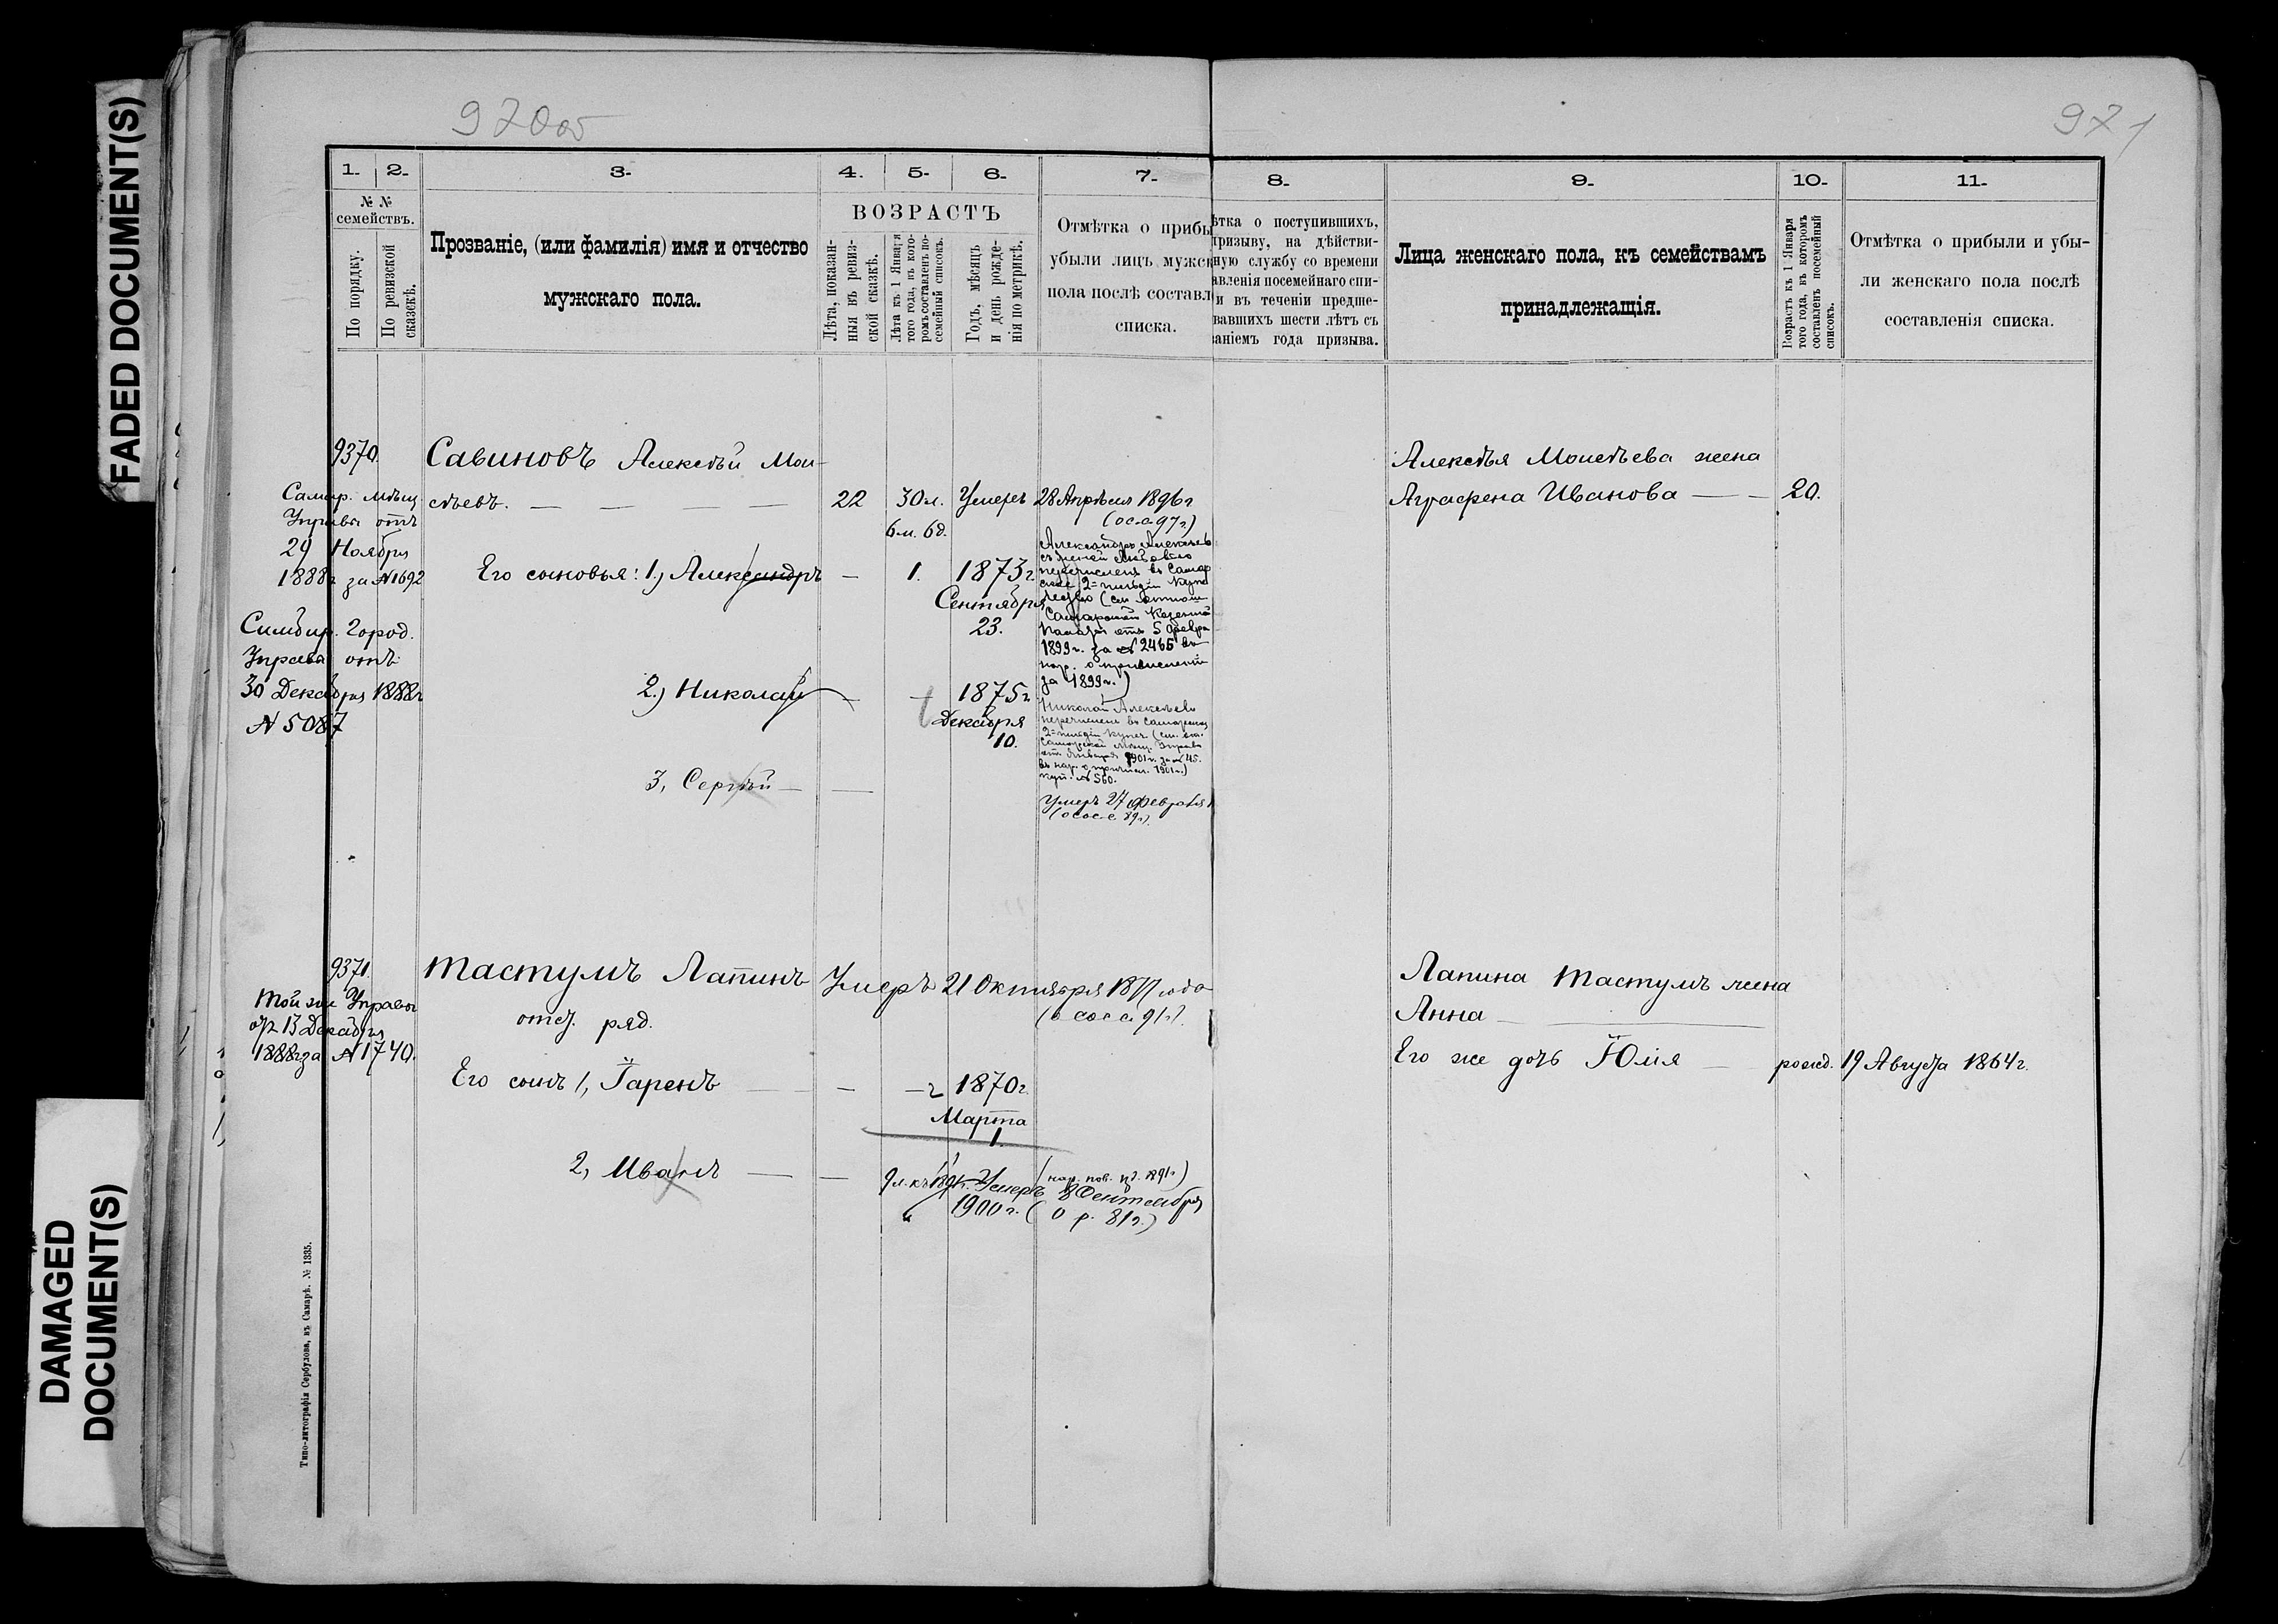 FADED DOCUMENT(S)
DAMAGED
DOCUMENT(S)
970 об
971
1. 2. 3. 4. 5. 6. 7. 8. 9. 10. 11.
№ №
семействъ.
По порядку.
По ревизской
сказкѣ.
Прозваніе, (или фамилія) имя и отчество
мужскаго пола.
ВОЗРАСТЪ
Лѣта, показан-
ныя въ ревиз-
ской сказкѣ.
Лѣта къ 1 Января
того года, въ кото-
ромъ составленъ по-
семейный списокъ.
Годъ, мѣсяцъ
и день рожде-
нія по метрикѣ.
Отмѣтка о прибы
убыли лицъ мужск
пола послѣ составл
списка.
ѣтка о поступившихъ,
призыву, на дѣйстви-
ную службу со времени
авленія посемейнаго спи-
и въ теченіи предше-
вавшихъ шести лѣтъ съ
аніемъ года призыва.
Лица женскаго пола, къ семействамъ
принадлежащія.
Возрастъ къ 1 Января
того года, въ которомъ
составленъ посемейный
списокъ.
Отмѣтка о прибыли и убы-
ли женскаго пола послѣ
составленія списка.
9370.
Самар. мѣщ.
Управы отъ
29 Ноября
1888г. за № 1692
Симбир. Город.
Управа отъ
30 Декабря 1888г
№ 5087
Савиновъ Алексѣй Мои-
сѣевъ. 22 30 л. Умеръ 28 Апрѣля 1896 г
6 м. 6 д. (ос.с. 97 г.)
Его сыновья: 1.) Александръ — 1. 1873 г.
Сентября
23.
Александръ Алексѣев
съ женой Любовью
перечисленъ въ Самар
ское 2=гильдіи купе
чество (см. отнош
Самарской Казенной
Палаты отъ 5 Февра
1899 г. за № 2465 въ
нар. о причислении
за 1899 г.)
2.) Николай — 1875 г.
Декабря
10.
Николай Алексѣевъ
перечисленъ въ Самарск
2=гильдіи купеч. (см. от.
Самарской Мѣщ. Управы
1901 г. за № 45.
въ нар. о причисл. 1901 г.)
№ 560.
3, Сергѣй —
Умеръ 27 Февраля
89 г.)
Алексѣя Моисѣева жена
Аграфена Иванова — 20.
9371.
Той же Управы
отъ 13 Декабря
1888 г за № 1740.
Тастумъ Лапинъ Умеръ 21 Октября 1877 года
отст. ряд. (о сос.с. 91 г.)
Его сынъ 1, Гаренъ — 1870 г.
Марта
1.
2, Иванъ — 9 л. къ (нар. пов. 1891 г)
Умеръ 8 Сентября
1900 г. (О р. 81 г.)
Лапина Тастумъ жена
Анна
Его же дочь Юлія — рожд. 19 Августа 1864 г.
Типо-литографія Сербулова, въ Самарѣ. № 1335.